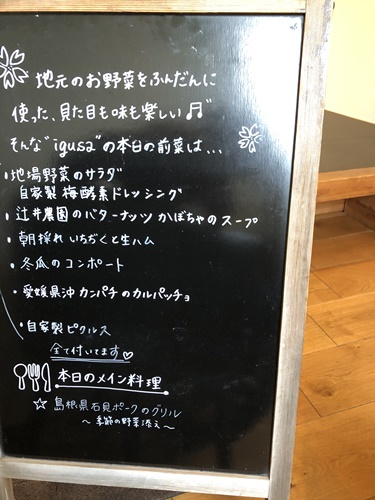 地元のお野菜をふんだんに
使った、見た目も味も楽しい♬
そんな"igusa"の本日の前菜は...
・地場野菜のサラダ
自家製 梅酵素ドレッシング
・辻井農園のバターナッツかぼちゃのスープ
・朝採れ いちぢくと生ハム
・冬瓜のコンポート
・愛媛県沖 カンパチのカルパッチョ
・自家製ピクルス
全て付いてます♡
本日のメイン料理
☆ 島根県石見ポークのグリル
〜季節の野菜添え〜